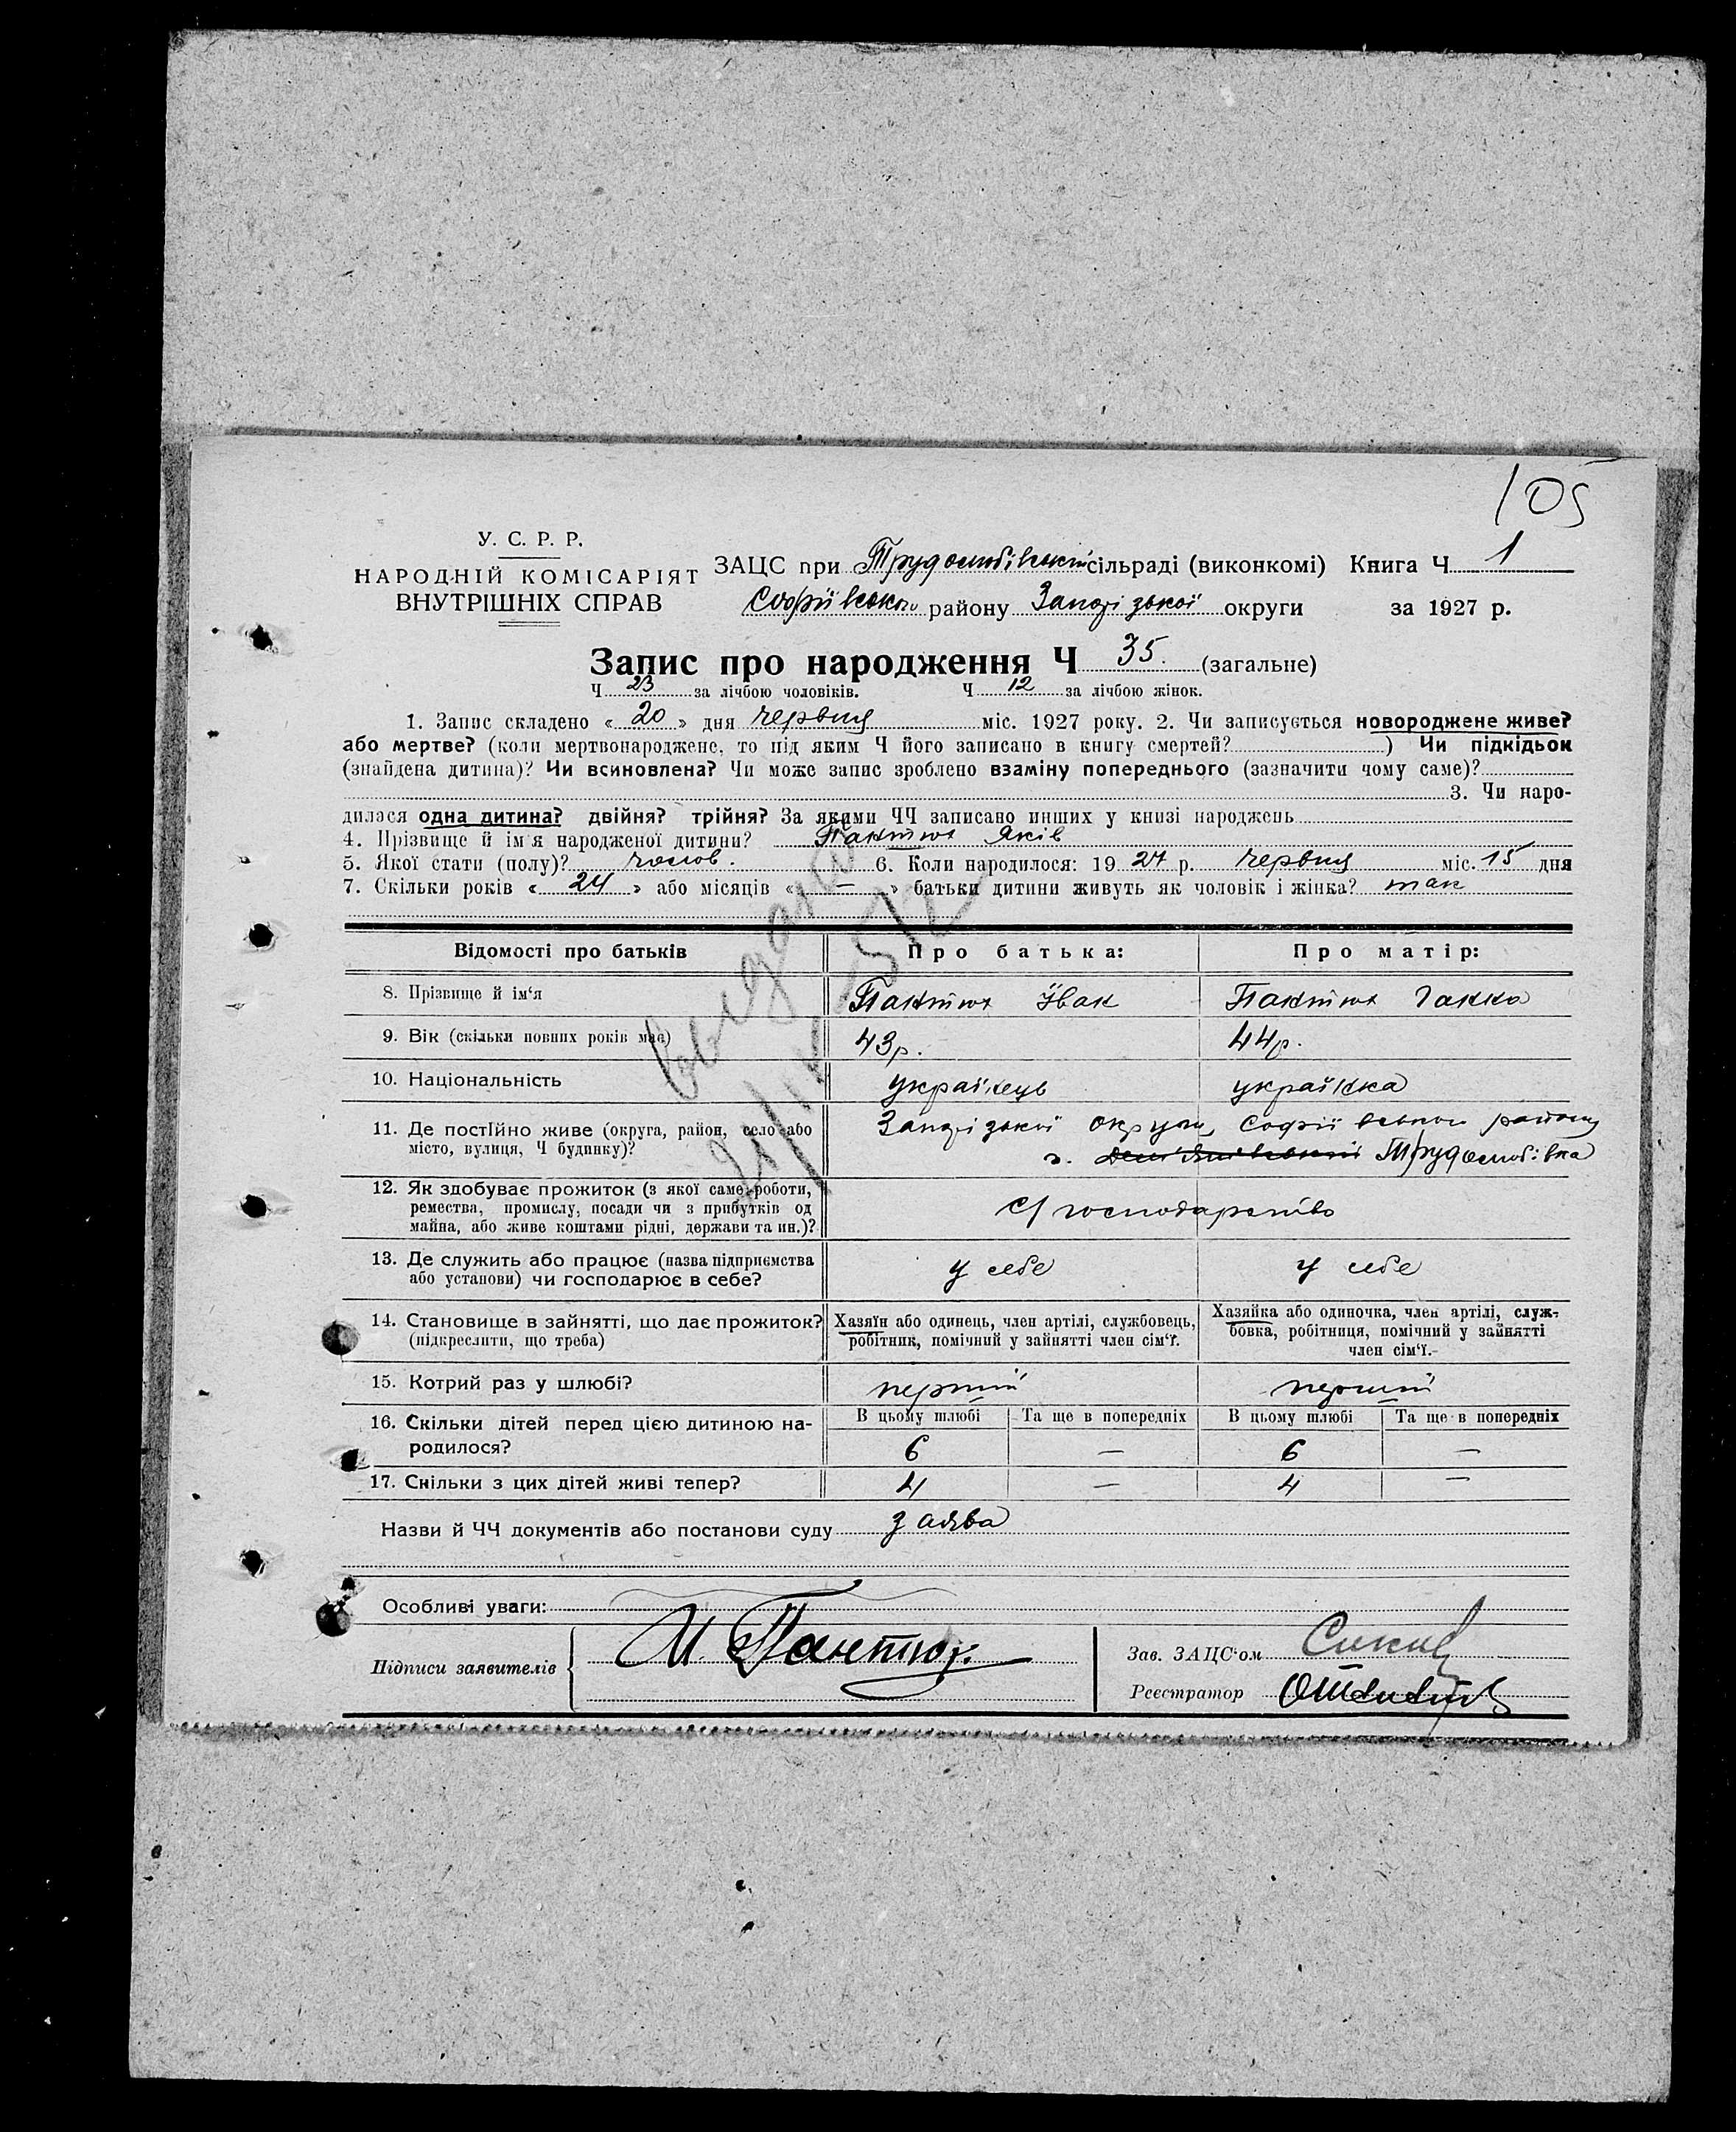 105
У. С. Р. Р.
НАРОДНІЙ КОМІСАРІЯТ
ВНУТРІШНІХ СПРАВ
ЗАЦС при Трудолюбівській сільраді (виконкомі) Книга Ч 1
Софіївсько району Запорізької округи за 1927 р.
Запис про народження Ч 35. (загальне)
Ч 23 за лічбою чоловіків. Ч 12 за лічбою жінок.
1. Запис складено « 20 » дня червця міс. 1927 року. 2. Чи записується новороджене живе?
або мертве? (коли мертвонароджене, то під яким Ч його записано в книгу смертей? ) Чи підкідьок
(знайдена дитина)? Чи всиновлена? Чи може запис зроблено взаміну попереднього (зазначити чому саме)?
3. Чи наро-
дилася одна дитина? двійня? трійня? За якими ЧЧ записано инших у книзі народжень
4. Прізвище й ім'я народженої дитини? Пантюх Яків
5. Якої стати (полу)? чолов. 6. Коли народилося: 19 27 р. червця міс. 15 дня
7. Скільки років « 24 » або місяців « — » батьки дитини живуть як чоловік і жінка? так
Відомості про батьків Про батька: Про матір:
8. Прізвище й ім'я Пантюх Іван Пантюх Ганна
9. Вік (скільки повних років має) 43р. 44р.
10. Національність українець українка
11. Де постійно живе (округа, район, село або
місто, вулиця, Ч будинку)?
Запорізької округи, Софіївського району
Трудолюбівка
12. Як здобуває прожиток (з якої саме роботи,
ремества, промислу, посади чи з прибутків од
майна, або живе коштами рідні, держави та ин.)?
с/господарство
13. Де служить або працює (назва підприємства
або установи) чи господарює в себе?
у себе у себе
14. Становище в зайнятті, що дає прожиток?
(підкреслити, що треба)
Хазяїн або одинець, член артілі, службовець,
робітник, помічний у зайнятті член сім'ї.
Хазяйка або одиночка, член артілі, служ-
бовка, робітниця, помічний у зайнятті
член сім'ї.
15. Котрий раз у шлюбі? перший перший
16. Скільки дітей перед цією дитиною на-
родилося?
В цьому шлюбі Та ще в попередніх В цьому шлюбі Та ще в попередніх
6 — 6 —
17. Скільки з цих дітей живі тепер? 4 — 4 —
Назви й ЧЧ документів або постанови суду заява
Особливі уваги:
Підписи заявителів И. Пантюх
Зав. ЗАЦС'ом
Реєстратор
выдано